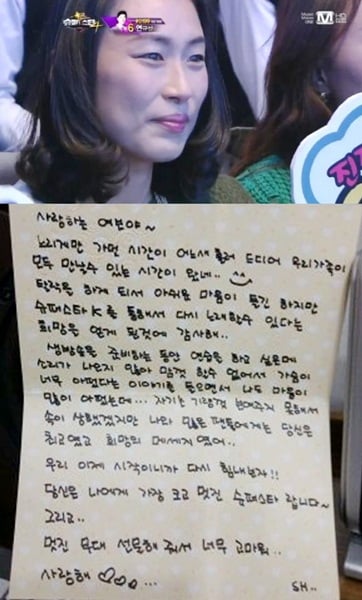 슈퍼스타K4
6
연규성
M HD
진
사랑하는 여분야~
느리게만 가던 시간이 어느새 흘러 드디어 우리가족이
모두 만날수 있는 시간이 왔네..
탈락을 하게 되서 아쉬운 마음이 들긴 하지만
슈퍼스타K를 통해서 다시 노래할수 있다는
희망을 얻게 된것에 감사해..
생방송을 준비하는 동안 연습을 하고 싶은데
소리가 나오지 않아 맘껏 할수 없어서 가슴이
너무 아팠다는 이야기를 들으면서 나도 마음이
많이 아팠는데... 자기는 기량껏 보여주지 못해서
속이 상했겠지만 나와 많은 팬들에게는 당신은
최고였고 희망의 메세지 였어..
우리 이제 시작이니까 다시 힘내보자!!
당신은 나에게 가장 크고 멋진 슈퍼스타 랍니다~
그리고..
멋진 무대 선물해 줘서 너무 고마워..
사랑해 ♡♡♡...
SH..